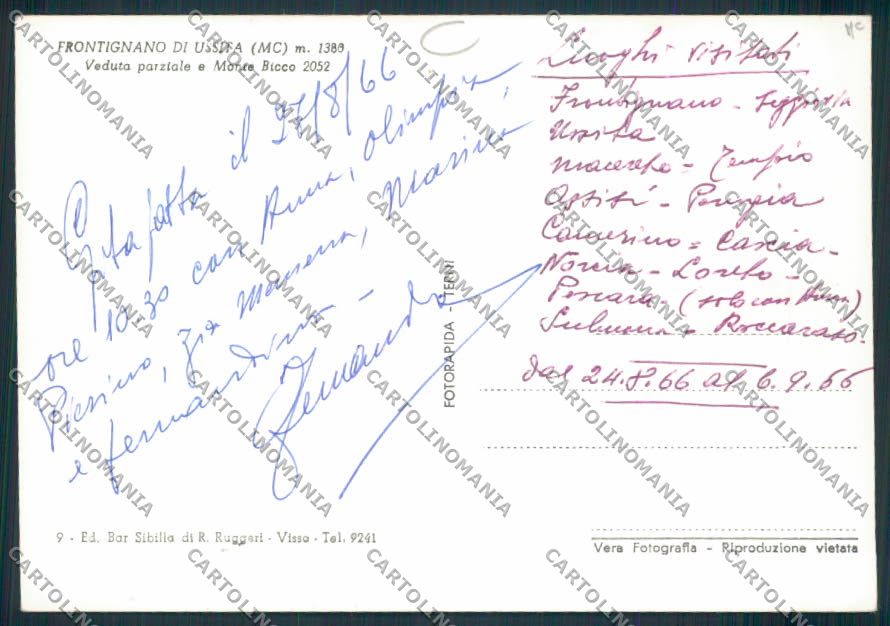 FRONTIGNANO DI USSITA (MC) m. 1380
Veduta parziale e Monte Bicco 2052
Gita fatta il 27/8/66
ore 10.30 con Anna, Olimpia,
Pierino, zia Marina
e Fernandino -
Fernanda
FOTORAPIDA - TERNI
Luoghi visitati
Frontignano - Seggiovia
Ussita
Macereto - Tempio
Assisi - Perugia
Camerino = Cascia -
Norcia - Loreto -
Pescara - (solo con Anna)
Sulmona - Roccaraso.
dal 24.8.66 al 6.9.66
9 - Ed. Bar Sibilla di R. Ruggeri - Visso - Tel. 9241
Vera Fotografia - Riproduzione vietata
MC
CARTOLINOMANIA